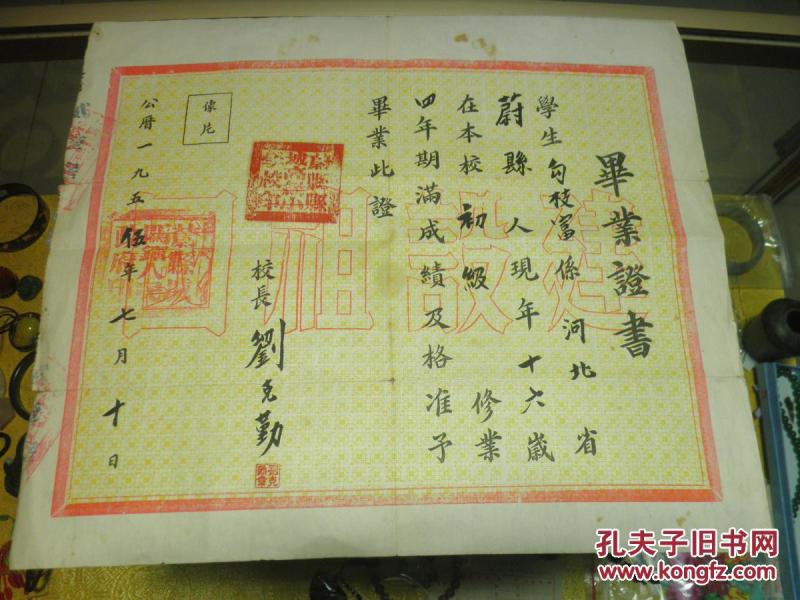 畢業證書
學生勾枝富係河北省
蔚縣人現年十六歲
在本校初級修業
四年期滿成績及格准予
畢業此證
像片
校長劉克勤
公曆一九五伍年七月十日
建設祖国
孔夫子旧书网
www.kongfz.com